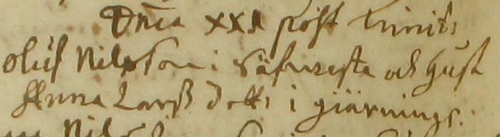 Dnica XXI post Trinit:
Oluf Nilsson i Säfvesta och hust
Anna Larsz dotr i giärninge:
Nils